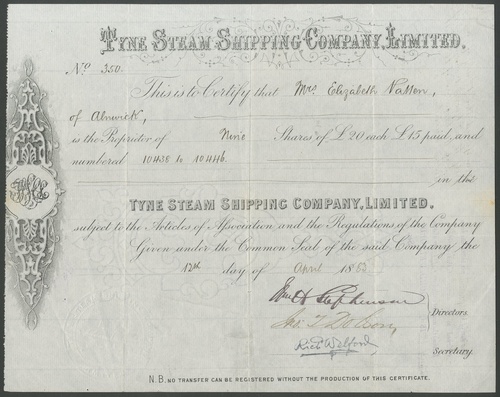 TYNE STEAM SHIPPING COMPANY, LIMITED.
No. 350.
This is to Certify that Mrs. Elizabeth
of Alnwick,
is the Proprietor of Nine Shares of £20 each £15 paid, and
numbered 10438 to 10446
in the
TYNE STEAM SHIPPING COMPANY, LIMITED.
subject to the Articles of Association and the Regulations of the Company
Given under the Common Seal of the said Company the
12th day of April 18
Wm H Stephenson
Directors
Richd Welford
Secretary.
N.B. NO TRANSFER CAN BE REGISTERED WITHOUT THE PRODUCTION OF THIS CERTIFICATE.